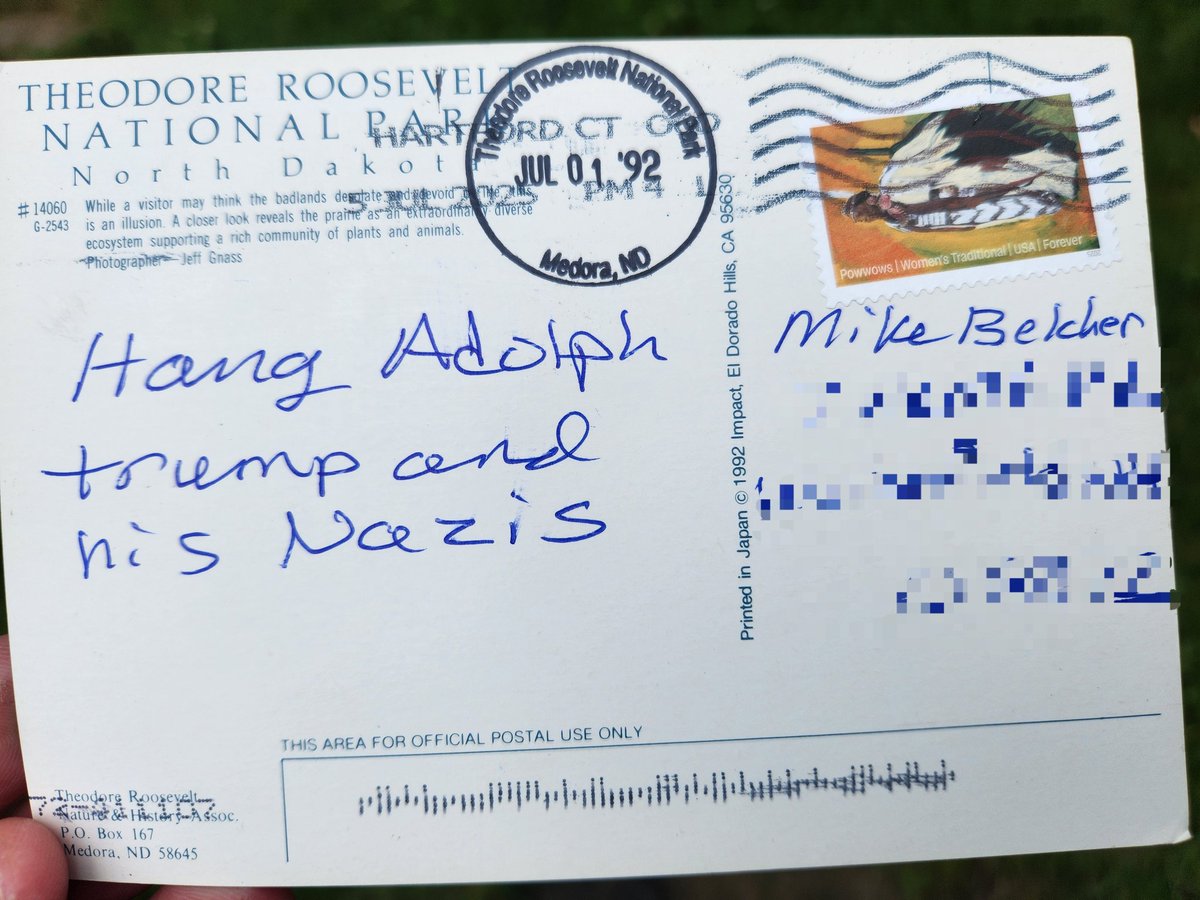 THEODORE ROOSEVELT
NATIONAL PARK
North Dakota
#14060
G-2543
While a visitor may think the badlands desolate and devoid of life, this
is an illusion. A closer look reveals the prairie as an extraordinary diverse
ecosystem supporting a rich community of plants and animals.
Photographer Jeff Gnass
HARTFORD CT
2025 PM 4 L
Theodore Roosevelt National Park
JUL 01, '92
Medora, ND
Powwows | Women's Traditional | USA | Forever
2025
Hang Adolph
trump and
his Nazis
Printed in Japan © 1992 Impact, El Dorado Hills, CA 95630
Mike Belcher
THIS AREA FOR OFFICIAL POSTAL USE ONLY
Theodore Roosevelt
Nature & History Assoc.
P.O. Box 167
Medora, ND 58645